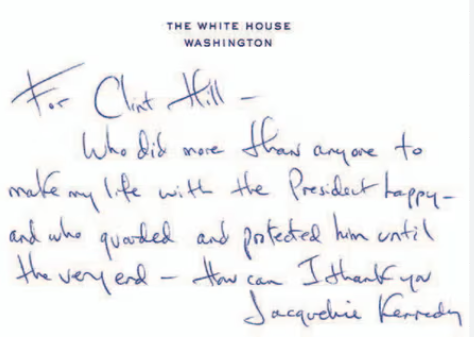 THE WHITE HOUSE
WASHINGTON
For Clint Hill –
Who did more than anyone to
make my life with the President happy–
and who guarded and protected him until
the very end – How can I thank you
Jacqueline Kennedy